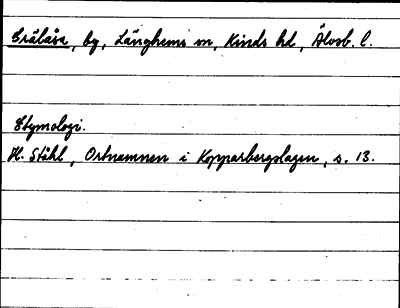 Grälåsa, by, Länghems sn, Kinds hd, Älvsb. l.
Etymologi.
H. Ståhl, Ortnamnen i Kopparbergslagen, s. 13.